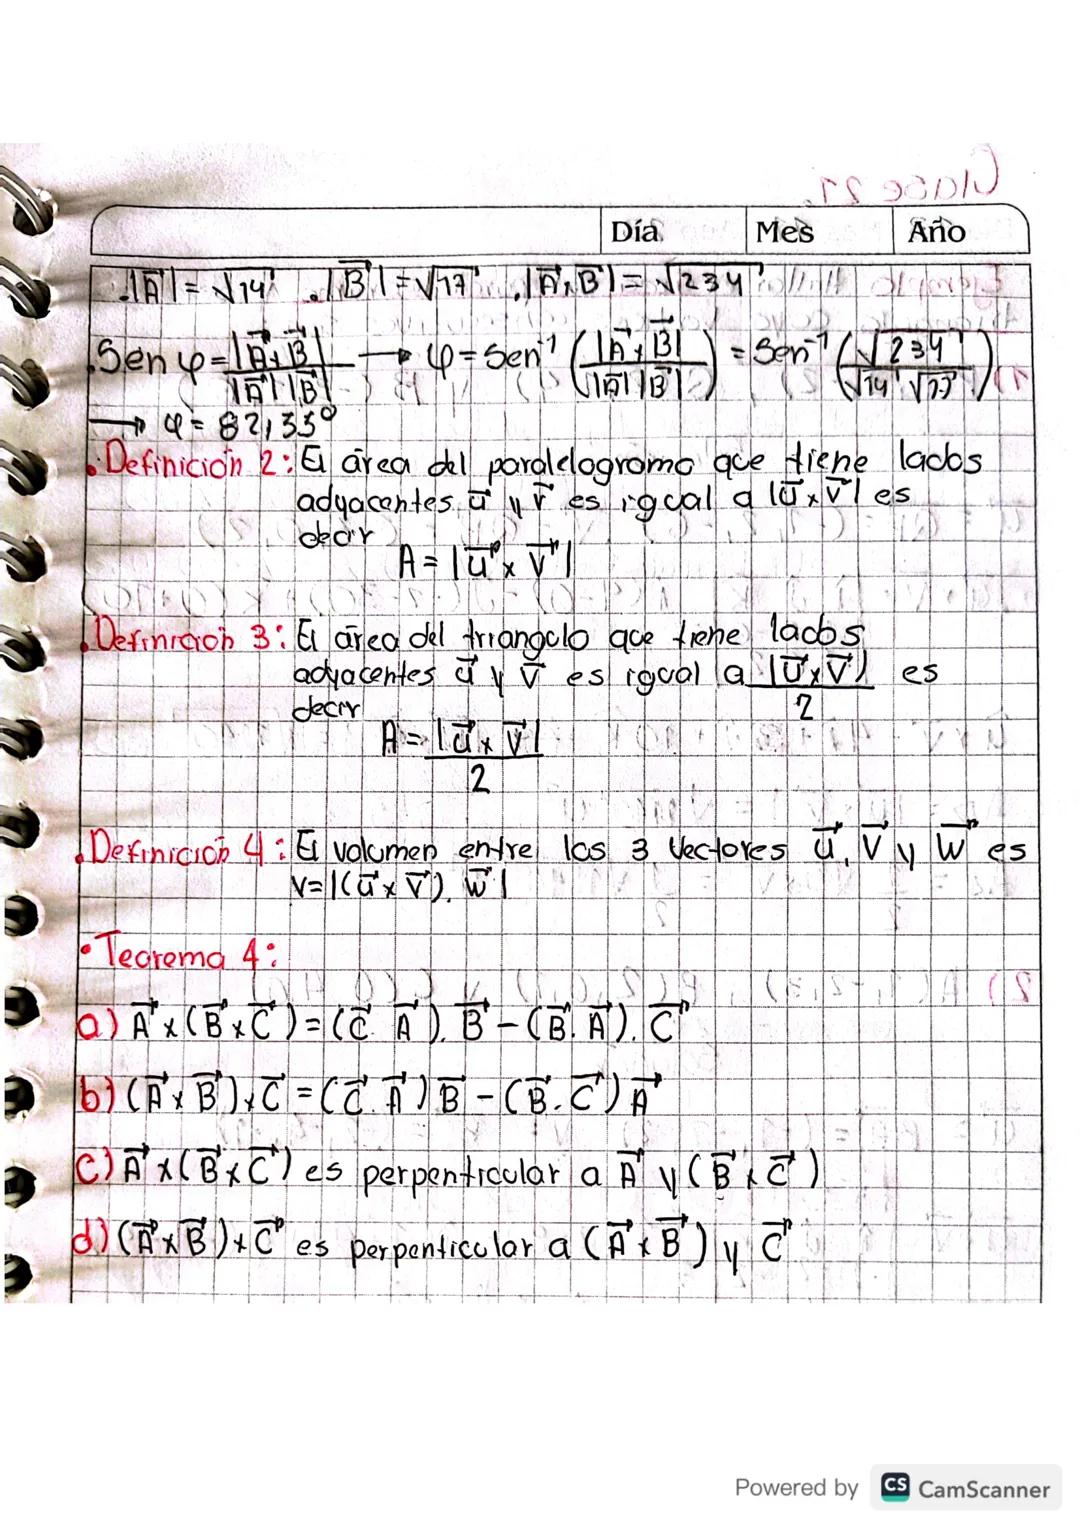 Día Mes Año
.|A⃗| = √14 .|B⃗| = √17 .|A⃗×B⃗| = √234
.Sen φ = |A⃗×B⃗| / |A⃗| |B⃗| → φ = Sen⁻¹ (|A⃗×B⃗| / |A⃗| |B⃗|) = Sen⁻¹ (√234 / √14 √17)
→ φ = 82,33°
• Definición 2: El área del paralelogramo que tiene lados
adyacentes u⃗ y v⃗ es igual a |u⃗×v⃗| es
decir
A = |u⃗ × v⃗|
• Definición 3: El área del triangulo que tiene lados
adyacentes u⃗ y v⃗ es igual a |u⃗×v⃗| / 2 es
decir
A = |u⃗ × v⃗| / 2
• Definición 4: El volumen entre los 3 vectores u⃗, v⃗ y w⃗ es
V = |(u⃗ × v⃗). w⃗|
• Teorema 4:
a) A⃗ × (B⃗ × C⃗) = (C⃗. A⃗). B⃗ − (B⃗. A⃗). C⃗
b) (A⃗ × B⃗) × C⃗ = (C⃗. A⃗) B⃗ − (B⃗. C⃗) A⃗
c) A⃗ × (B⃗ × C⃗) es perpenticular a A⃗ y (B⃗ × C⃗)
d) (A⃗ × B⃗) × C⃗ es perpenticular a (A⃗ × B⃗) y C⃗
Powered by CS CamScanner